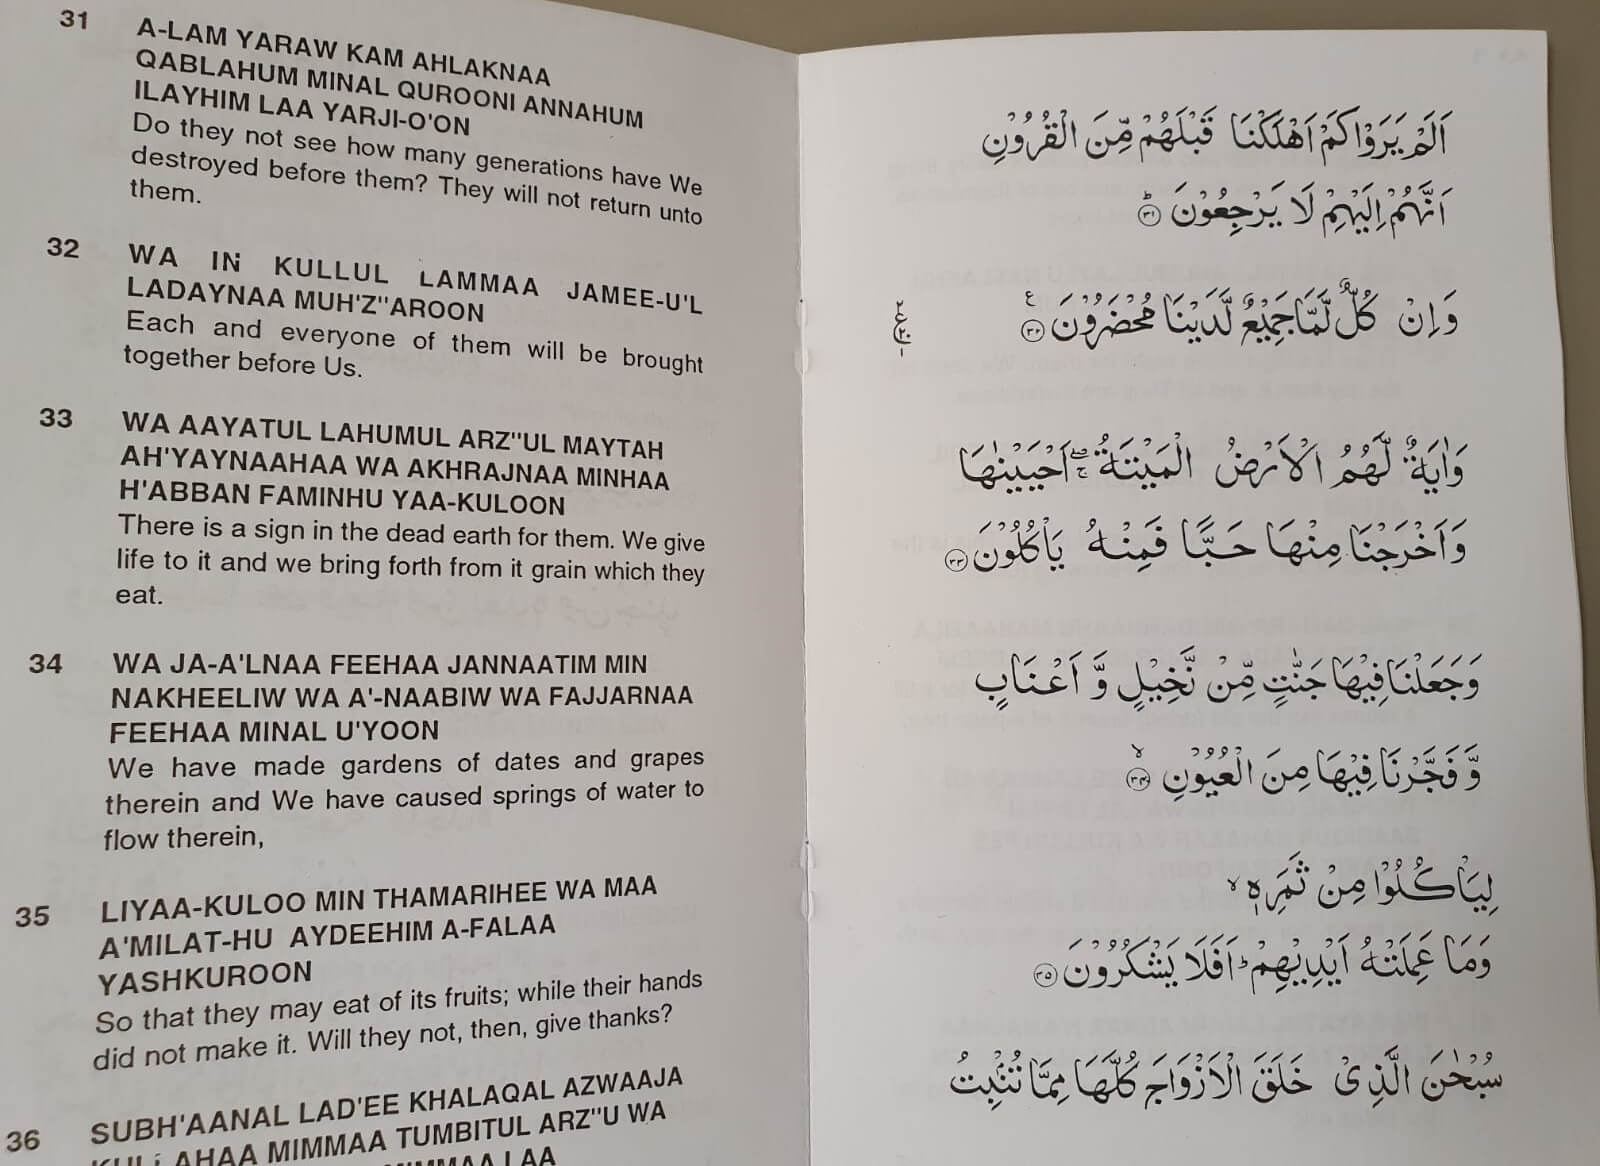 31 A-LAM YARAW KAM AHLAKNAA
QABLAHUM MINAL QUROONI ANNAHUM
ILAYHIM LAA YARJI-O'ON
Do they not see how many generations have We
destroyed before them? They will not return unto
them.
32 WA IN KULLUL LAMMAA JAMEE-U'L
LADAYNAA MUH'Z"AROON
Each and everyone of them will be brought
together before Us.
33 WA AAYATUL LAHUMUL ARZ"UL MAYTAH
AH'YAYNAAHAA WA AKHRAJNAA MINHAA
H'ABBAN FAMINHU YAA-KULOON
There is a sign in the dead earth for them. We give
life to it and we bring forth from it grain which they
eat.
34 WA JA-A'LNAA FEEHAA JANNAATIM MIN
NAKHEELIW WA A'-NAABIW WA FAJJARNAA
FEEHAA MINAL U'YOON
We have made gardens of dates and grapes
therein and We have caused springs of water to
flow therein,
35 LIYAA-KULOO MIN THAMARIHEE WA MAA
A'MILAT-HU AYDEEHIM A-FALAA
YASHKUROON
So that they may eat of its fruits; while their hands
did not make it. Will they not, then, give thanks?
36 SUBH'AANAL LAD'EE KHALAQAL AZWAAJA
AHAA MIMMAA TUMBITUL ARZ"U WA
LAA
اَلَمْ يَرَوْا كَمْ اَهْلَكْنَا قَبْلَهُمْ مِّنَ الْقُرُوْنِ
اَنَّهُمْ اِلَيْهِمْ لَا يَرْجِعُوْنَ ؕ ٣١
وَاِنْ كُلٌّ لَّمَّا جَمِيْعٌ لَّدَيْنَا مُحْضَرُوْنَ ٣٢ ع
وَاٰيَةٌ لَّهُمُ الْاَرْضُ الْمَيْتَةُ ۖۚ اَحْيَيْنٰهَا
وَاَخْرَجْنَا مِنْهَا حَبًّا فَمِنْهُ يَاْكُلُوْنَ ٣٣
وَجَعَلْنَا فِيْهَا جَنّٰتٍ مِّنْ نَّخِيْلٍ وَّ اَعْنَابٍ
وَّ فَجَّرْنَا فِيْهَا مِنَ الْعُيُوْنِ ۙ ٣٤
لِيَاْكُلُوْا مِنْ ثَمَرِهٖ ۙ
وَمَا عَمِلَتْهُ اَيْدِيْهِمْ ؕ اَفَلَا يَشْكُرُوْنَ ٣٥
سُبْحٰنَ الَّذِىْ خَلَقَ الْاَزْوَاجَ كُلَّهَا مِمَّا تُنْۢبِتُ